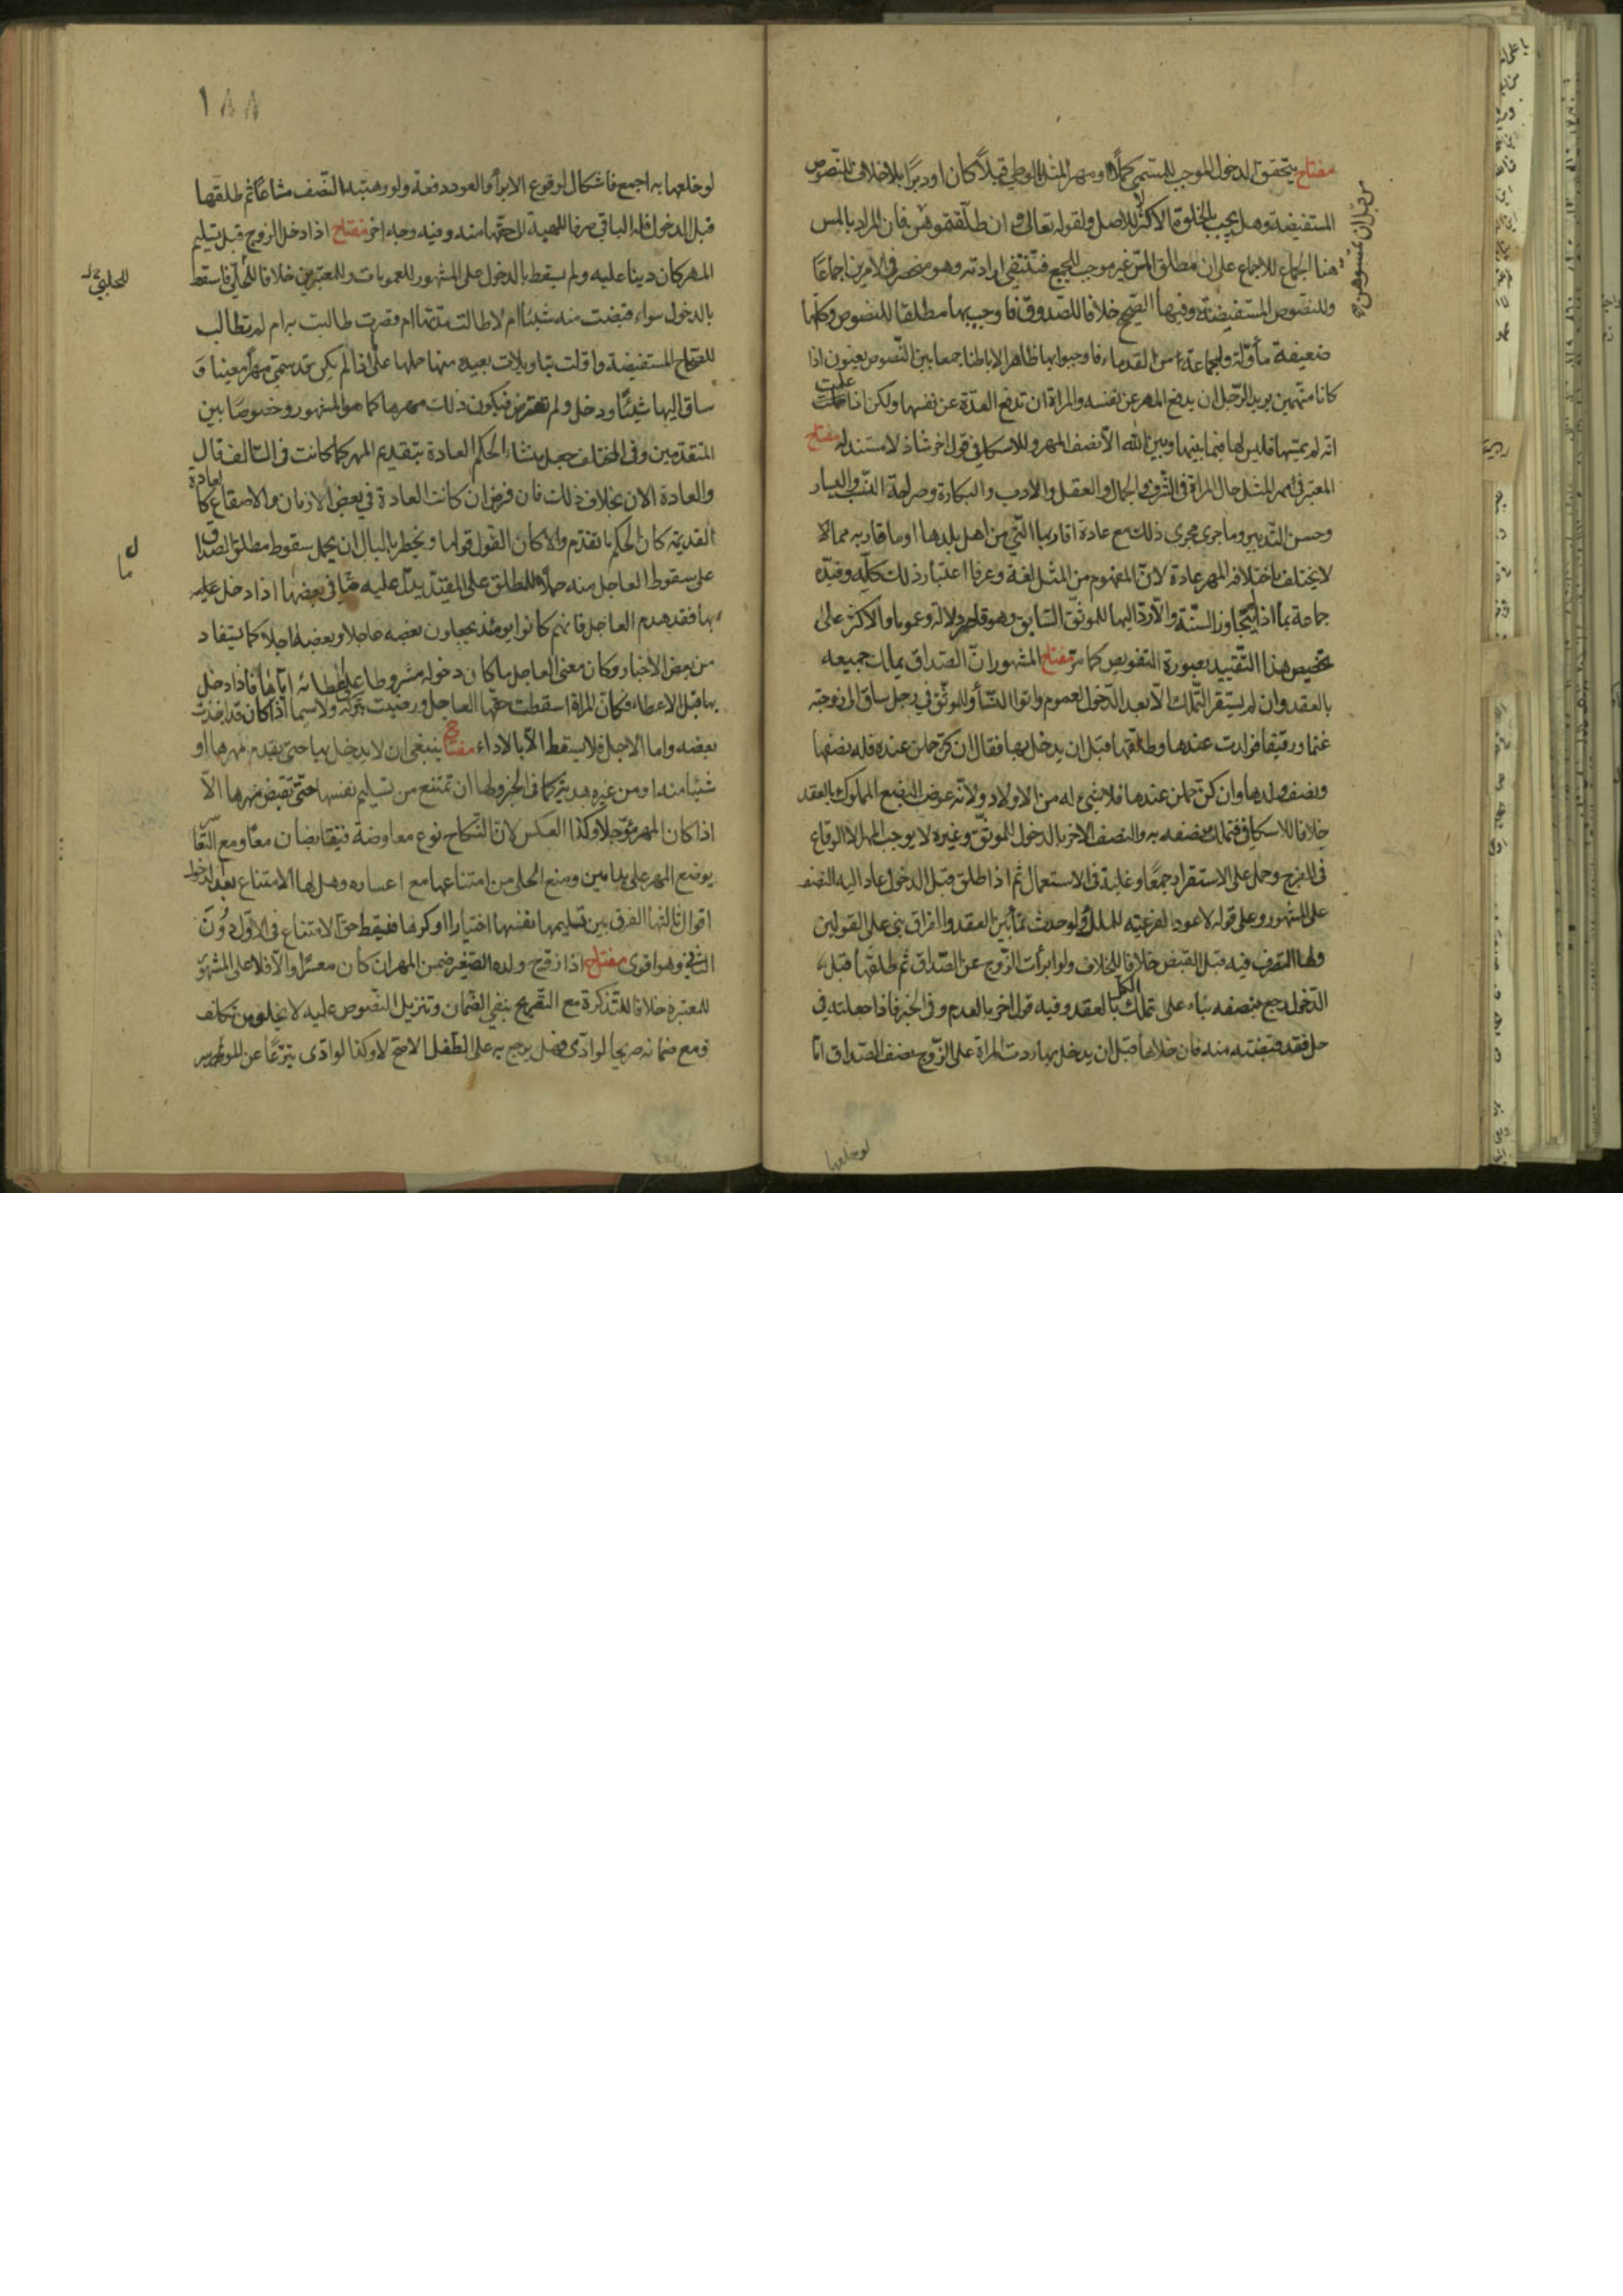 مفتاح يتحقق الدخول الموجب للمسمى كملا او مهر المثل بالوطي قبلا كان او دبرا بلا خلاف للنصوص
المستفيضة وهل يجب بالخلوة الاكثر لا للاصل ولقوله تعالى وان طلقتموهن فان المراد بالمس
من قبل ان تمسوهن
هنا الجماع للاجماع على ان مطلق المس غير موجب للجميع فتنتفي ارادته وهو منحصر في الامرين اجماعا
وللنصوص المستفيضة وفيها الصحيح خلافا للصدوق فاوجبه بها مطلقا للنصوص وكلها
ضعيفة مأولة ولجماعة من القدماء فاوجبوا بها ظاهرا لا باطنا جمعا بين النصوص يعنون اذا
كانا متهمين يريد الرجل ان يدفع المهر عن نفسه والمراة ان تدفع العدة عن نفسها ولكن اذا علمت
انه لم يمسها فليس لها فيما بينها وبين الله الا نصف المهر وللاسكافي قول اخر شاذ لا مستند له مفتاح
المعتبر في مهر المثل حال المراة في الشرف والجمال والعقل والادب والبكارة وصراحة النسب واليسار
وحسن التدبير وما جرى مجرى ذلك مع عادة اقاربها التي من اهل بلدها او ما قاربه مما لا
لا يختلف باختلافه المهر عادة لان المفهوم من المثل لغة وعرفا اعتبار ذلك كله وقيده
جماعة بما اذا لم يتجاوز السنة والا رد اليها للموثق السابق وهو قاصر دلالة وعموما والاكثر على
تخصيص هذا التقييد بصورة التفويض كما مر مفتاح المشهور ان الصداق يملك جميعه
بالعقد وان لم يستقر التملك الا بعد الدخول لعموم واتوا النساء وللموثق في رجل ساق الى زوجته
غنما ورقيقا فولدت عندها وطلقها قبل ان يدخل بها فقال ان كن حملن عنده فله نصفها
ونصف ولدها وان كن حملن عندها فلا شيء له من الاولاد ولانه عوض البضع المملوك بالعقد
خلافا للاسكافي فتملك نصفه به والنصف الاخر بالدخول للموثق وغيره لا يوجب المهر الا الوقاع
في الفرج وحمل على الاستقرار جمعا وغلبة في الاستعمال ثم اذا طلق قبل الدخول عاد اليه النصف
على المشهور وعلى قوله لا عود لفرعيته للملك ولو حدث نماء بين العقد والفراق بني على القولين
ولها التصرف فيه قبل القبض خلافا للخلاف ولو ابرأت الزوج عن الصداق ثم طلقها قبل
الدخول رجع بنصفه بناء على تملك الكل بالعقد وفيه قول اخر بالعدم وفي الخبر فاذا جعلته في
حل فقد قبضته منه فان خلاها قبل ان يدخل بها ردت المراة على الزوج نصف الصداق اما
لو خلعها
١٨٨
لو خلعها به اجمع فاشكال لوقوع الابراء والعود دفعة ولو وهبته النصف مشاعا ثم طلقها
قبل الدخول فله الباقي صرفا للهبة الى حقها منه وفيه وجه اخر مفتاح اذا دخل الزوج قبل تسليم
المهر كان دينا عليه ولم يسقط بالدخول على المشهور للعمومات وللمعتبرين خلافا للحلبي فاسقط
للحلبي
بالدخول سواء قبضت منه شيئا ام لا طالت مدتها ام قصرت طالبت به ام لم تطالب
للصحاح المستفيضة واولت بتاويلات بعيدة منها حملها على اذا لم يكن قد سمى مهرا معينا و
ساق اليها شيئا ودخل ولم تعترض فيكون ذلك مهرها كما هو المشهور وخصوصا بين
المتقدمين وفي المختلف جعل منشاء الحكم العادة بتقديم المهر كما كانت في السالف قال
والعادة الان بخلاف ذلك فان فرض ان كانت العادة في بعض الازمان والاصقاع كالعادة
القديمة كان الحكم ما تقدم والا كان القول قولها ويخطر بالبال ان يحمل سقوط مطلق الصداق
على سقوط العاجل منه حملا للمطلق على المقيد يدل عليه ما في بعضها اذا دخل عليها
بها فقد هدم العاجل فانهم كانوا يومئذ يجعلون بعضه عاجلا وبعضه اجلا كما يستفاد
من بعض الاخبار وكان معنى العاجل ما كان دخوله مشروطا على اعطائه اياها فاذا دخل
بها قبل الاعطاء فكان المراة اسقطت حقها العاجل ورضيت بتركه ولا سيما اذا كان قد اخذت
بعضه واما الاجل فلا يسقط الا بالاداء مفتاح ينبغي ان لا يدخل بها حتى يقدم مهرها او
شيئا منه او من غيره هدية كما في الخبر ولها ان تمتنع من تسليم نفسها حتى تقبض مهرها الا
اذا كان المهر مؤجلا وكذا العكس لان النكاح نوع معاوضة فيتقابضان معا ومع التعاسر
يوضع المهر على يد امين ومنع الحلي من امتناعها مع اعساره وهل لها الامتناع بعد الدخول
اقوال ثالثها الفرق بين تسليمها نفسها اختيارا او كرها فيقط حق الامتناع في الاول دون
الثاني وهو اقوى مفتاح اذا زوج ولده الصغير ضمن المهر ان كان معسرا والا فلا على المشهور
للمعتبرة خلافا للتذكرة مع التصريح بنفي الضمان وتنزيل النصوص عليه لا يخلو من تكلف
ومع ضمانه صريحا لو ادى فهل يرجع به على الطفل الاصح لا وكذا لو ادى تبرعا عن